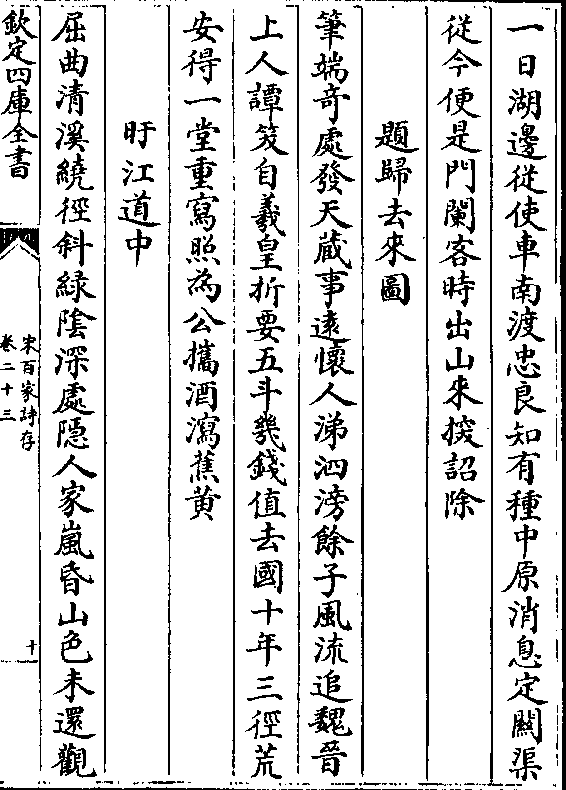 一日湖邊從使車南渡忠良知有種中原消息定闗渠
從今便是門闌客時出山來掞詔除
題歸去來圖
筆端竒處發天蔵事逺懐人涕泗滂餘子風流追魏晉
上人譚笑自羲皇折要五斗幾錢值去國十年三徑荒
安得一堂重寫照為公攜酒瀉蕉黄
盱江道中
屈曲清溪繞徑斜緑隂深處隠人家嵐昏山色未還觀
欽定四庫全書
宋百家詩存
卷二十三
十